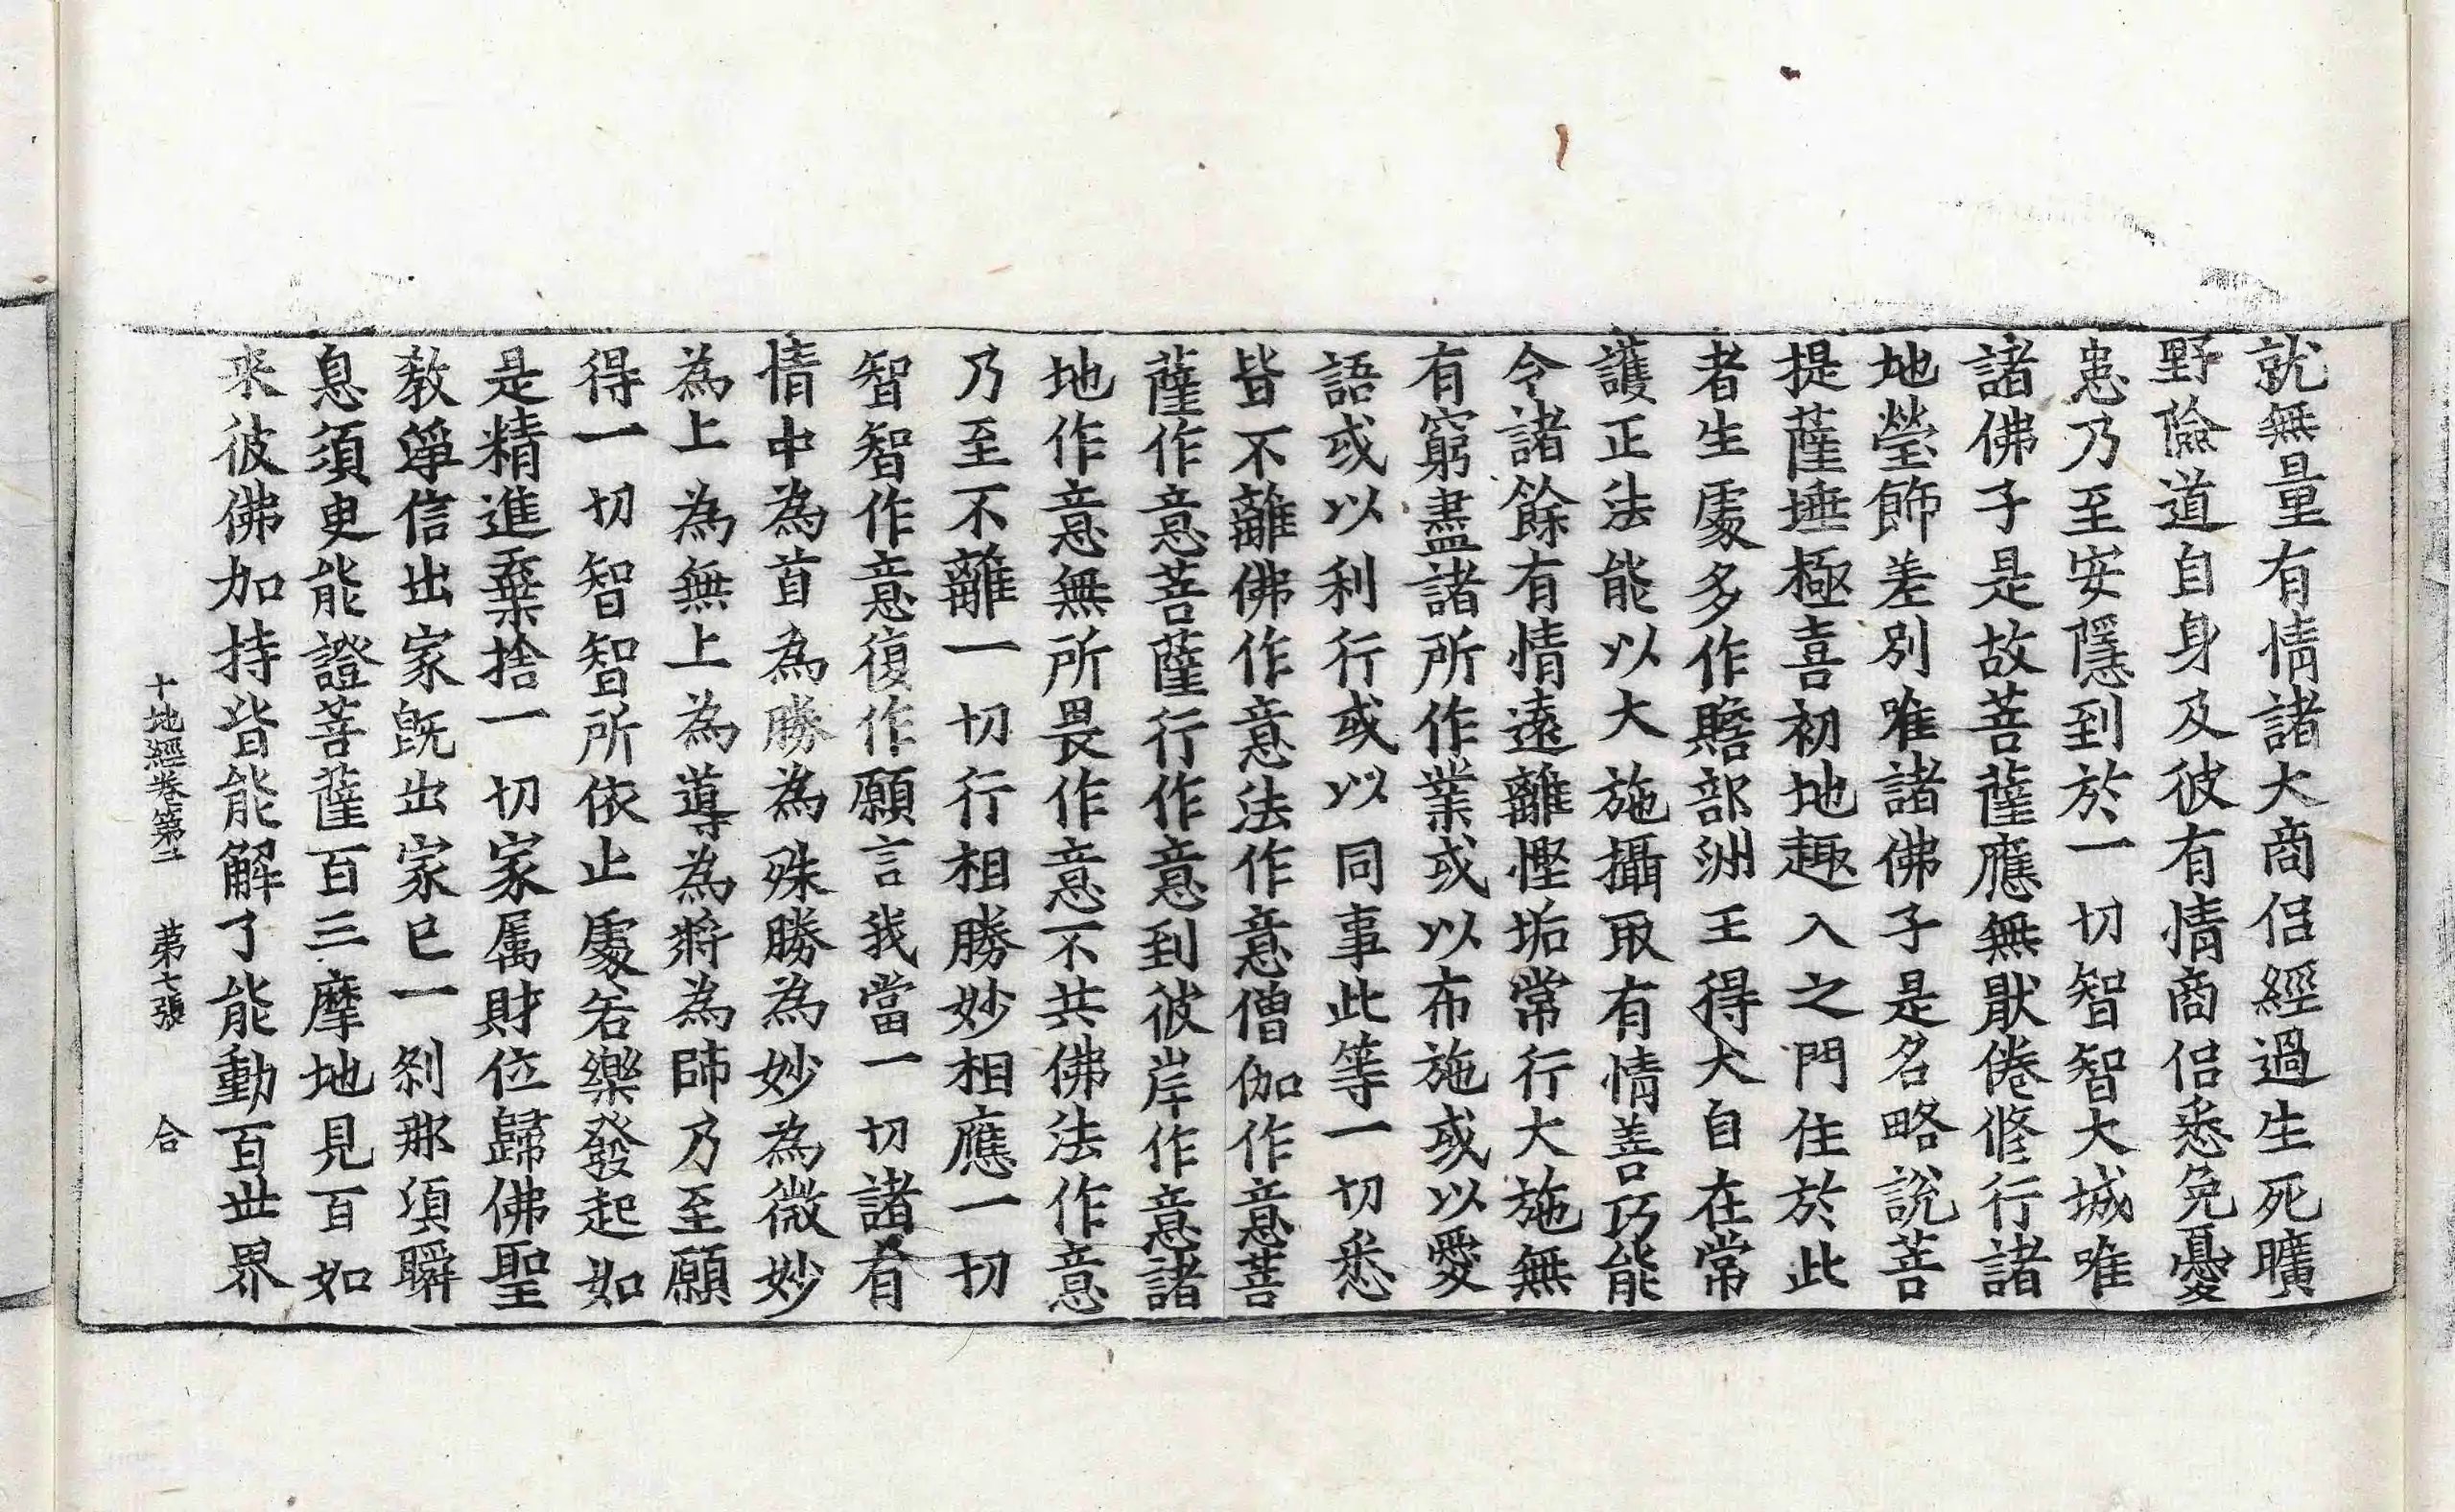 就無量有情諸大商侶經過生死曠
野險道自身及彼有情商侶悉免憂
恚乃至安隱到於一切智智大城唯
諸佛子是故菩薩應無猒倦修行諸
地瑩飾差別唯諸佛子是名略說菩
提薩埵極喜初地趣入之門住於此
者生處多作贍部洲王得大自在常
護正法能以大施攝取有情善巧能
令諸餘有情遠離慳垢常行大施無
有窮盡諸所作業或以布施或以愛
語或以利行或以同事此等一切悉
皆不離佛作意法作意僧伽作意菩
薩作意菩薩行作意到彼岸作意諸
地作意無所畏作意不共佛法作意
乃至不離一切行相勝妙相應一切
智智作意復作願言我當一切諸有
情中為首為勝為殊勝為妙為微妙
為上為無上為導為將為師乃至願
得一切智智所依止處若樂發起如
是精進棄捨一切家属財位歸佛聖
教淨信出家既出家已一剎那頃瞬
息須臾能證菩薩百三摩地見百如
来彼佛加持皆能解了能動百世界
十地經卷第二 第七張 合